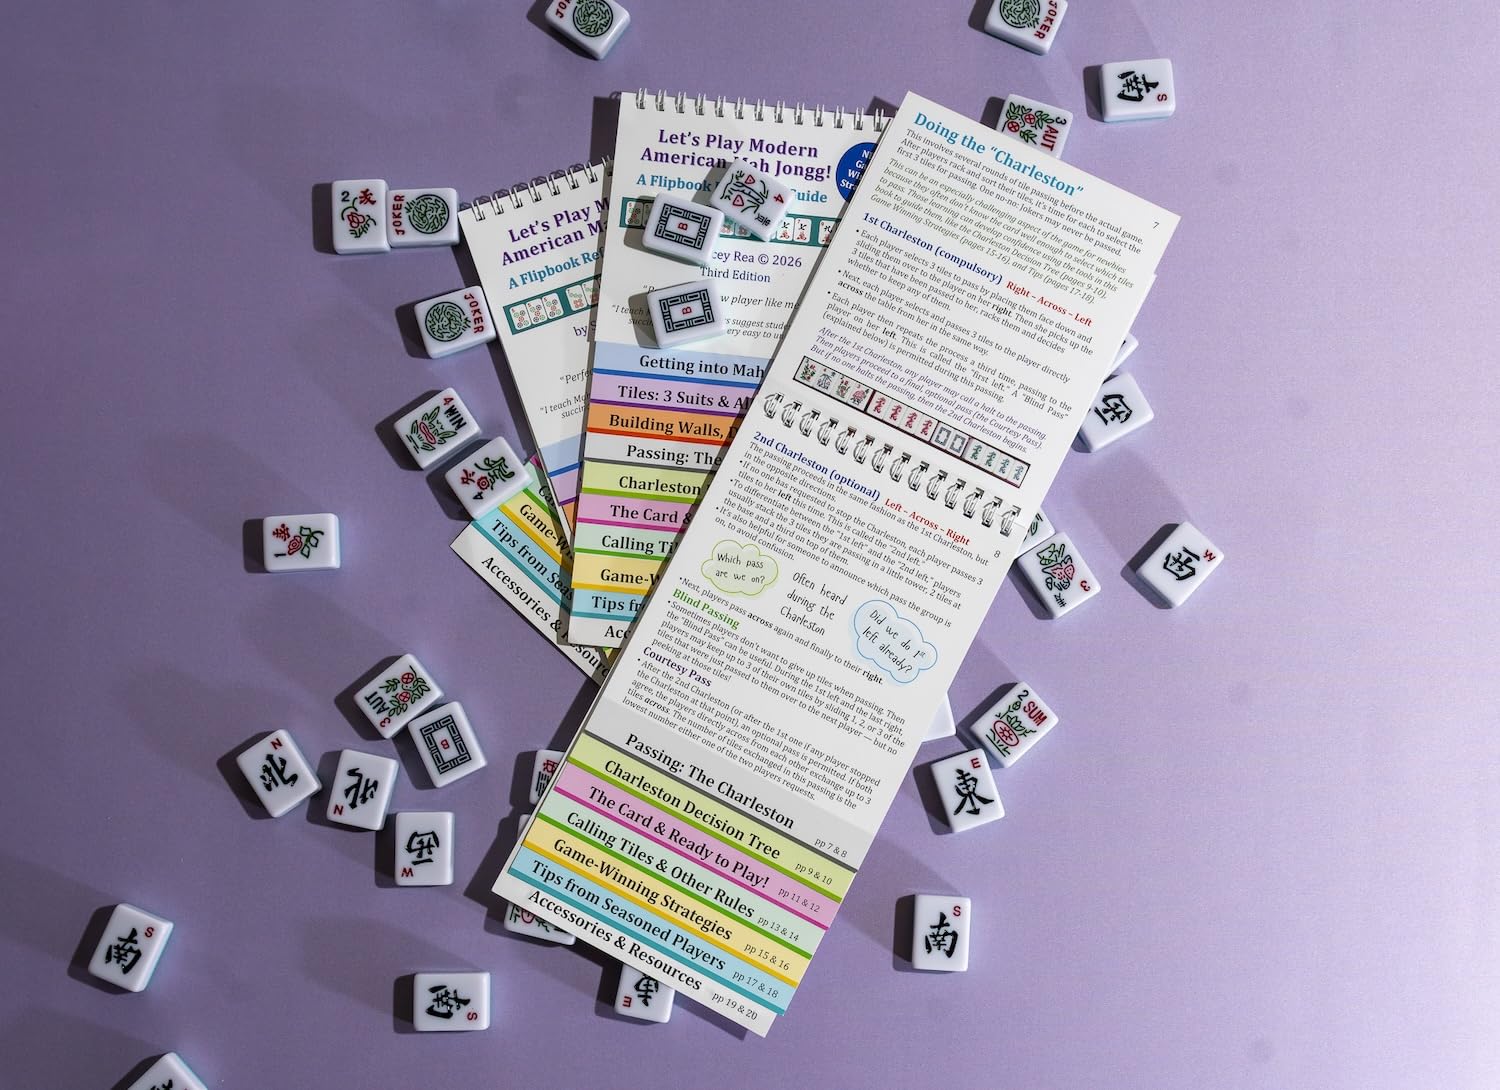 Let's Play M
American Ma
A Flipbook Re
by S
"Perfe
"I teach Ma
succin
Ca
Game-Wi
Tips from Seas
Accessories &
Resourc
Let's Play Modern
American Mah Jongg!
A Flipbook
Guide
cey Rea © 2026
Third Edition
w player like m
"I teach
suggest stud
succin
ery easy to un
Getting into Mah
Tiles: 3 Suits & Al
Building Walls, D
Passing: The
Charleston
The Card &
Calling Ti
Game-W
Tips fr
Acc
Doing the "Charleston"
7
This involves several rounds of tile passing before the actual game.
After players rack and sort their tiles, it's time for each to select the
first 3 tiles for passing. One no-no: Jokers may never be passed.
This can be an especially challenging aspect of the game for newbies
because they often don't know the card well enough to select which tiles
to pass. Those learning can develop confidence using the tools in this
book to guide them, like the Charleston Decision Tree (pages 9-10),
Game Winning Strategies (pages 15-16), and Tips (pages 17-18).
1st Charleston (compulsory) Right – Across – Left
• Each player selects 3 tiles to pass by placing them face down and
sliding them over to the player on her right. Then she picks up the
3 tiles that have been passed to her, racks them and decides
whether to keep any of them.
• Next, each player selects and passes 3 tiles to the player directly
across the table from her in the same way.
• Each player then repeats the process a third time, passing to the
player on her left. This is called the "first left." A "Blind Pass"
(explained below) is permitted during this passing.
After the 1st Charleston, any player may call a halt to the passing.
Then players proceed to a final, optional pass (the Courtesy Pass).
But if no one halts the passing, then the 2nd Charleston begins.
2nd Charleston (optional) Left – Across – Right
8
The passing proceeds in the same fashion as the 1st Charleston, but
in the opposite directions.
• If no one has requested to stop the Charleston, each player passes 3
tiles to her left this time. This is called the "2nd left."
• To differentiate between the "1st left" and the "2nd left," players
usually stack the 3 tiles they are passing in a little tower, 2 tiles at
the base and a third on top of them.
• It's also helpful for someone to announce which pass the group is
on, to avoid confusion.
Which pass
are we on?
Often heard
during the
Charleston
Did we do 1st
left already?
• Next, players pass across again and finally to their right.
Blind Passing
• Sometimes players don't want to give up tiles when passing. Then
the "Blind Pass" can be useful. During the 1st left and the last right,
players may keep up to 3 of their own tiles by sliding 1, 2, or 3 of the
tiles that were just passed to them over to the next player — but no
peeking at those tiles!
Courtesy Pass
• After the 2nd Charleston (or after the 1st one if any player stopped
the Charleston at that point), an optional pass is permitted. If both
agree, the players directly across from each other exchange up to 3
tiles across. The number of tiles exchanged in this passing is the
lowest number either one of the two players requests.
Passing: The Charleston pp 7 & 8
Charleston Decision Tree pp 9 & 10
The Card & Ready to Play! pp 11 & 12
Calling Tiles & Other Rules pp 13 & 14
Game-Winning Strategies pp 15 & 16
Tips from Seasoned Players pp 17 & 18
Accessories & Resources pp 19 & 20
JOKER
JOKER
南 S
3 AUT
2
JOKER
JOKER
4 WIN
4
1
4
B
B
西 W
3
2 SUM
東 E
3 AUT
B
北 N
北 N
西 W
南 S
南 S
南 S
E